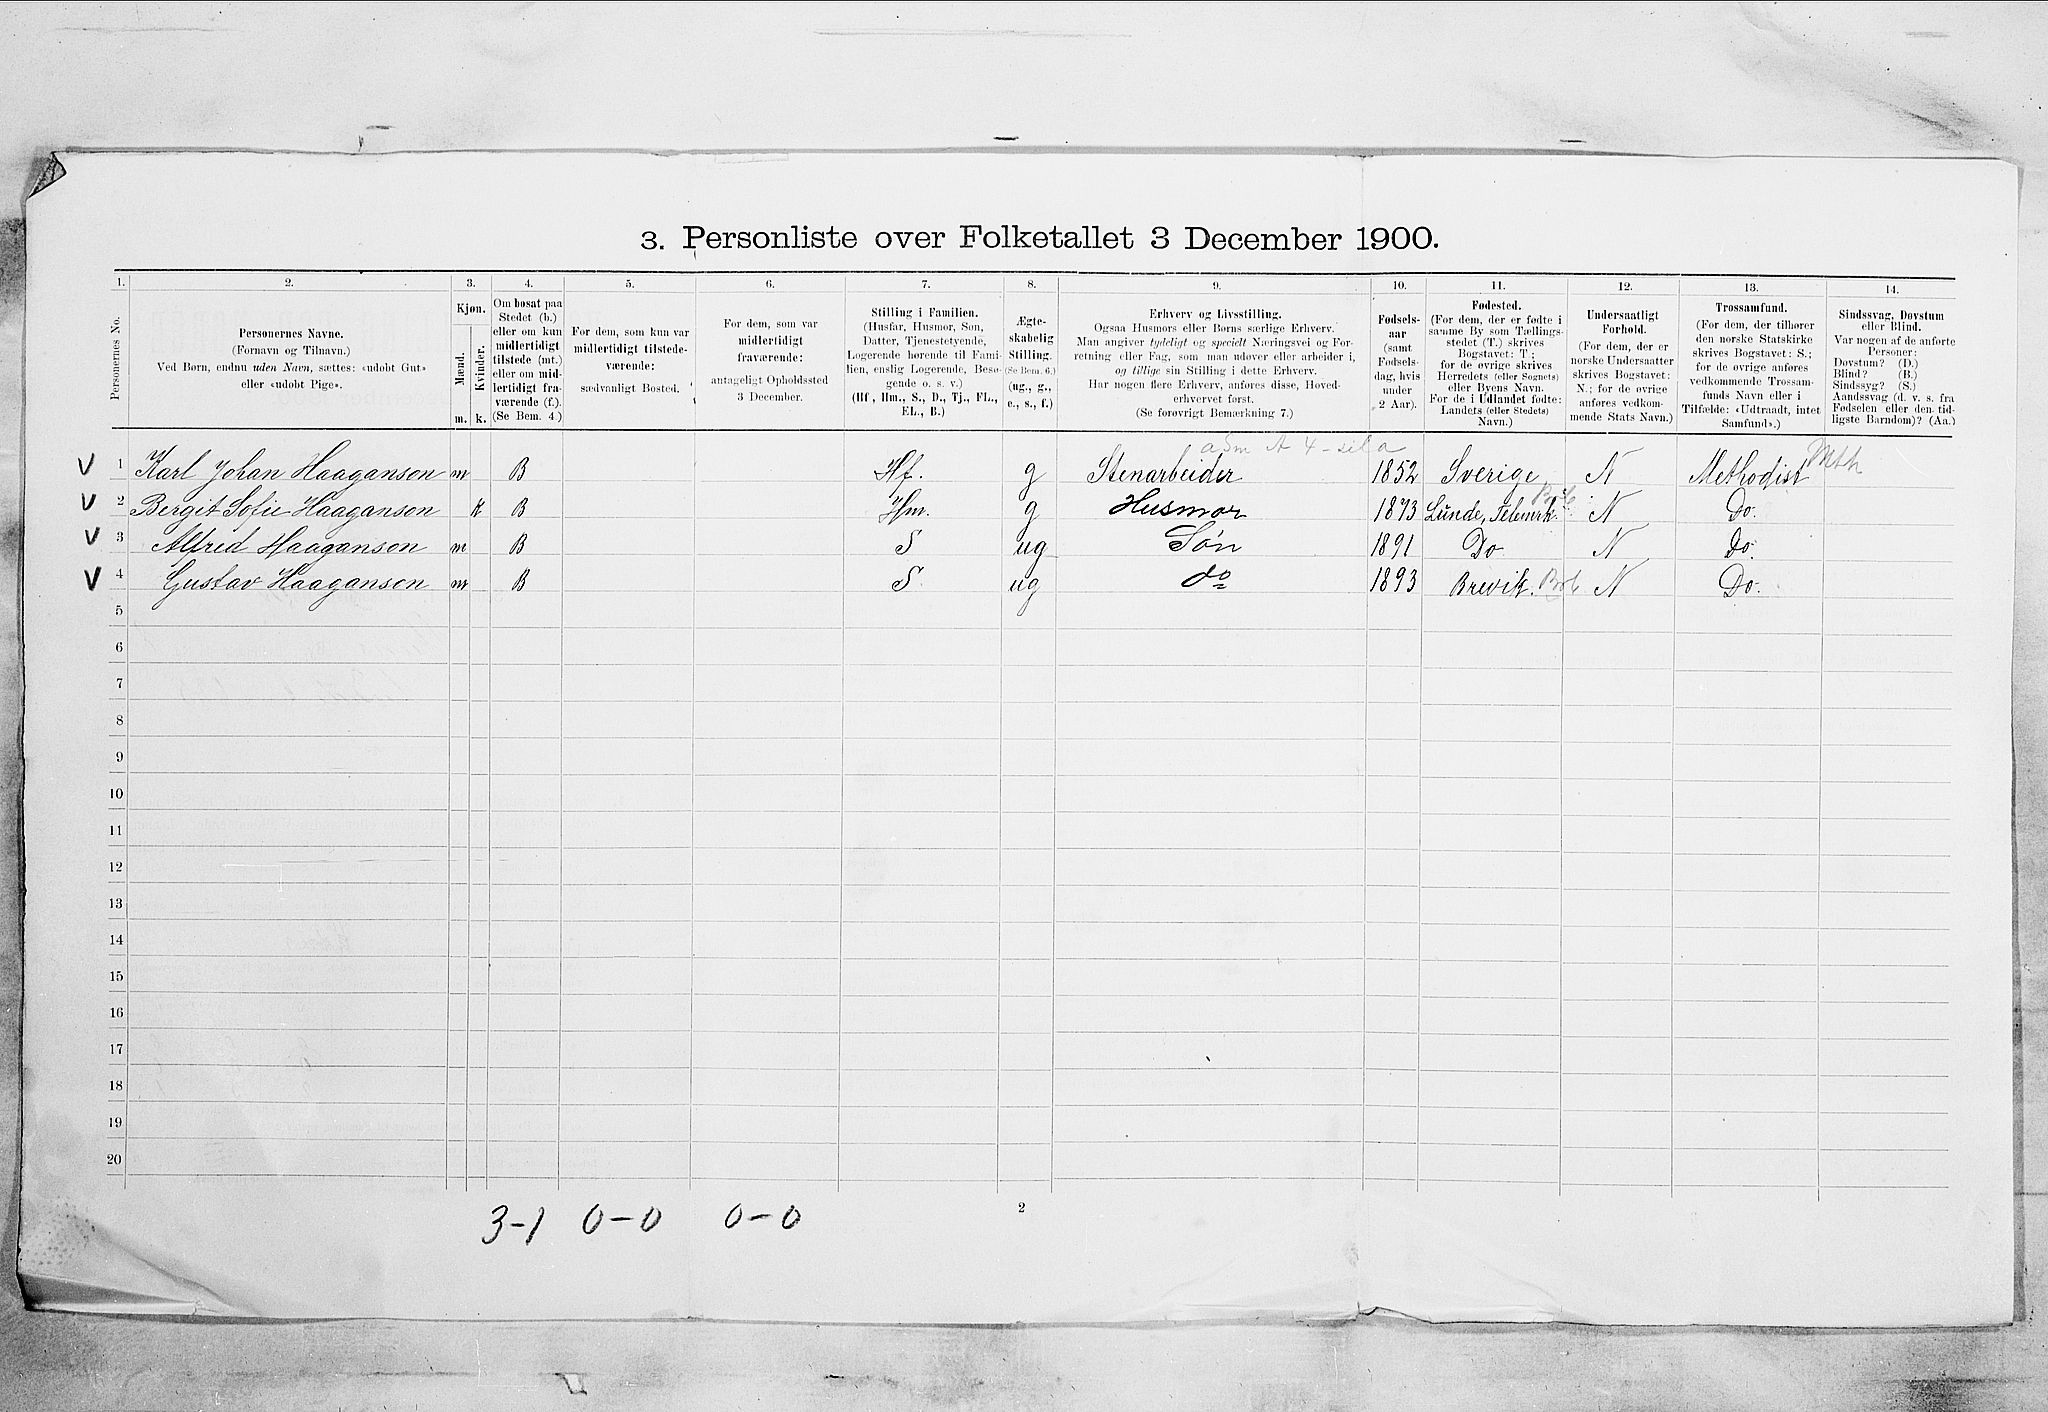 3. Personliste over Folketallet 3 December 1900.
1. 2. 3. 4. 5. 6. 7. 8. 9. 10. 11. 12. 13. 14.
Personernes No.
Personernes Navne.
(Fornavn og Tilnavn.)
Ved Børn, endnu uden Navn, sættes: «udobt Gut»
eller «udobt Pige».
Kjøn.
Mænd.
Kvinder.
m. k.
Om bosat paa
Stedet (b.)
eller om kun
midlertidigt
tilstede (mt.)
eller om mid-
lertidigt fra-
værende (f.)
(Se Bem. 4.)
For dem, som kun var
midlertidigt tilstede-
værende:
sædvanligt Bosted.
For dem, som var
midlertidigt
fraværende:
antageligt Opholdssted
3 December.
Stilling i Familien.
(Husfar, Husmor, Søn,
Datter, Tjenestetyende,
Logerende hørende til Fami-
lien, enslig Logerende, Besø-
gende o. s. v.)
(Hf, Hm., S., D., Tj., FL.,
EL., B.)
Ægte-
skabelig
Stilling.
(Se Bem. 6.)
(ug., g.,
e., s., f.)
Erhverv og Livsstilling.
Ogsaa Husmors eller Børns særlige Erhverv.
Man angiver tydeligt og specielt Næringsvei og For-
retning eller Fag, som man udøver eller arbeider i,
og tillige sin Stilling i dette Erhverv.
Har nogen flere Erhverv, anføres disse, Hoved-
erhvervet først.
(Se forøvrigt Bemærkning 7.)
Fødsels-
aar
(samt
Fødsels-
dag, hvis
under
2 Aar).
Fødested.
(For dem, der er fødte i
samme By som Tællings-
stedet (T.) skrives
Bogstavet: T;
for de øvrige skrives
Herredets (eller Sognets)
eller Byens Navn.
For de i Udlandet fødte:
Landets (eller Stedets)
Navn.)
Undersaatligt
Forhold.
(For dem, der er
norske Undersaatter
skrives Bogstavet:
N.; for de øvrige
anføres vedkom-
mende Stats Navn.)
Trossamfund.
(For dem, der tilhører
den norske Statskirke
skrives Bogstavet: S.;
for de øvrige anføres
vedkommende Trossam-
funds Navn eller i
Tilfælde: «Udtraadt, intet
Samfund».)
Sindssvag, Døvstum
eller Blind.
Var nogen af de anførte
Personer:
Døvstum? (D.)
Blind? (B.)
Sindssyg? (S.)
Aandssvag (d. v. s. fra
Fødselen eller den tid-
ligste Barndom)? (Aa.)
V 1 Karl Johan Haaganson m B Hf. g Stenarbeider 1852 Sverige N Methodist Meth
V 2 Bergit Sofie Haaganson K B Hm. g Husmor 1873 Lunde, Telemrk. N Do.
V 3 Alfred Haaganson m B S ug Søn 1891 Do N Do.
V 4 Gustav Haaganson m B S. ug do 1893 Brevik. N Do.
5
6
7
8
9
10
11
12
13
14
15
16
17
18
19
20
3-1 0-0 0-0
2